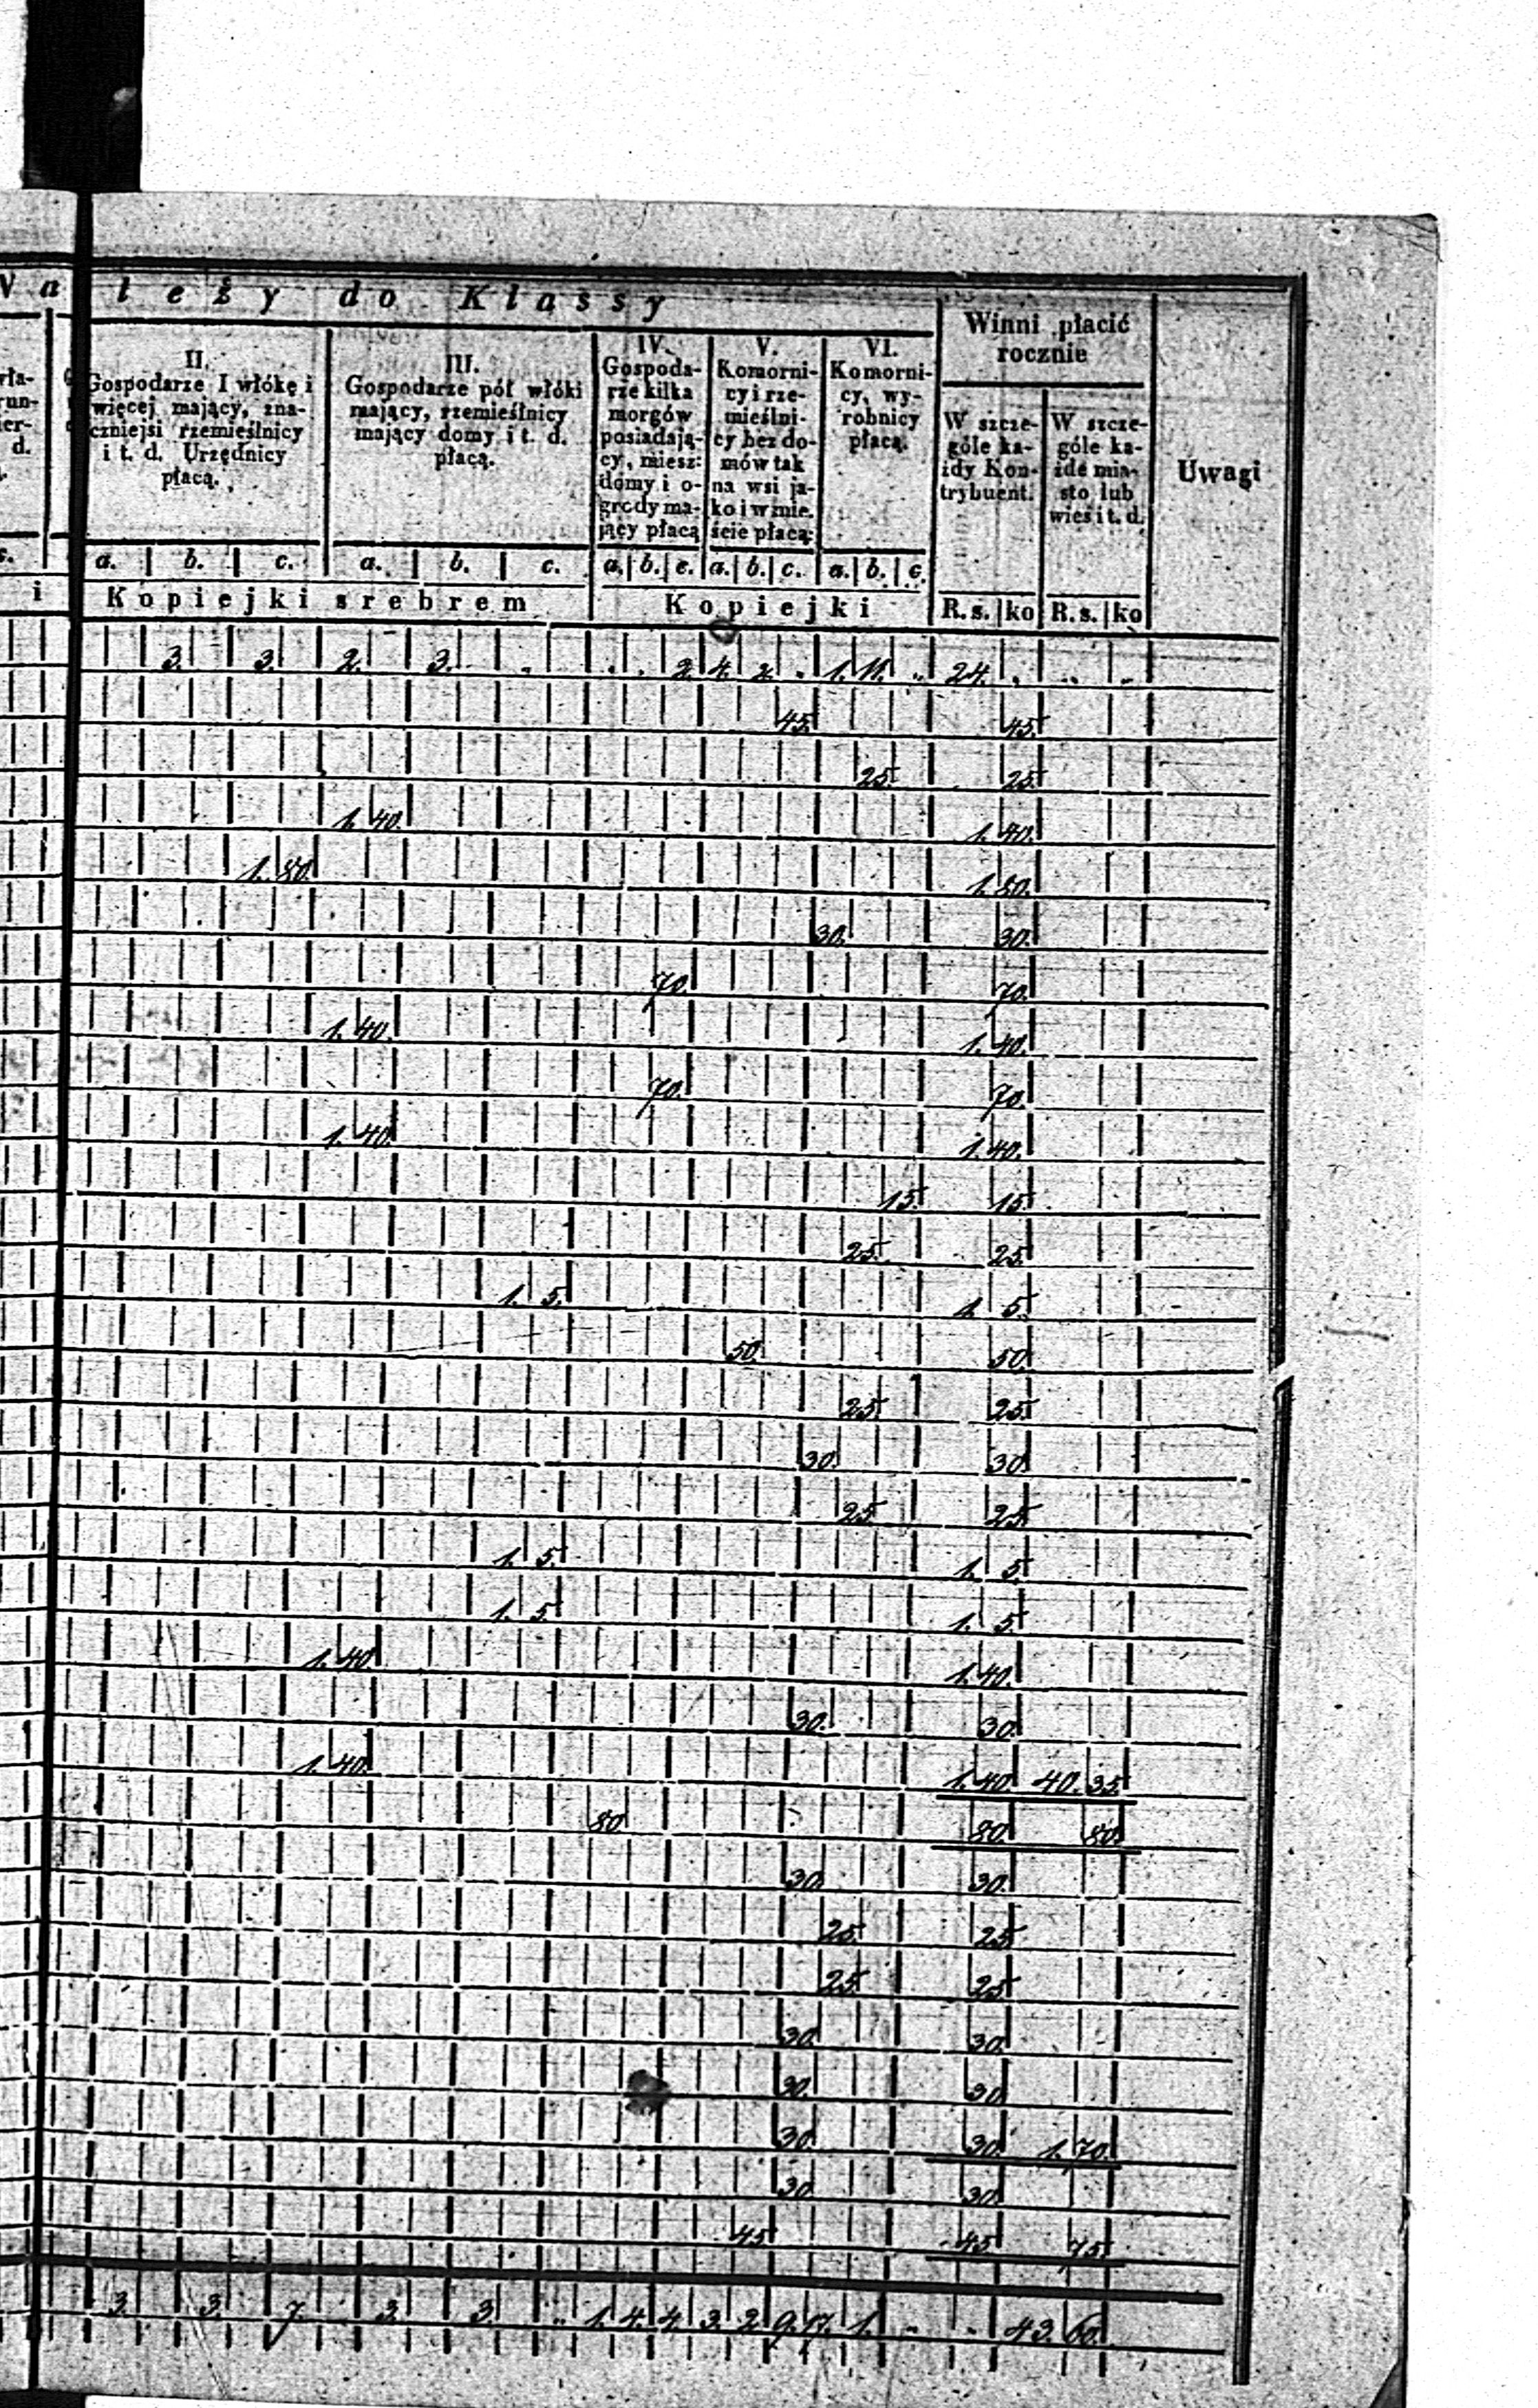 Na leży do Klassy
Winni płacić rocznie
Uwagi
II.
Gospodarze I włókę i
więcej mający, zna-
czniejsi rzemieślnicy
i t. d. Urzędnicy
płacą.
III.
Gospodarze pół włóki
mający, rzemieślnicy
mający domy i t. d.
płacą.
IV.
Gospoda-
rze kilka
morgów
posiadają-
cy, miesz:
domy i o-
grody ma-
jący płacą
V.
Komorni-
cy i rze-
mieślni-
cy bez do-
mów tak
na wsi ja-
ko i w mie-
ście płacą:
VI.
Komorni-
cy, wy-
robnicy
płacą.
W szcze-
góle ka-
żdy Kon-
trybuent.
W szcze-
góle ka-
żde mia-
sto lub
wieś i t. d.
a. b. c. a. b. c. a. b. c. a. b. c. a. b. c.
i Kopiejki srebrem Kopiejki R.s. ko R.s. ko
3. 3. 2. 3. 2. 4. 2. 1. 11. 24.
45. 45.
25. 25.
1. 40. 1. 40.
1. 80. 1. 80.
30. 30.
70. 70.
1. 40. 1. 40.
70. 70.
1. 40. 1. 40.
15. 15.
25. 25.
1. 5. 1. 5.
50. 50.
25. 25.
30. 30.
25 25.
1. 5. 1. 5.
1. 5. 1. 5.
1. 40. 1. 40.
30. 30.
1. 40. 1. 40. 40. 35.
80 80. 80.
30. 30.
25. 25
25. 25
30. 30.
30. 30.
30. 30. 1. 70.
30. 30.
45 45 75.
3. 3. 7. 3. 3. 1. 4. 4. 3. 2. 9. 17. 1. 43. 60.